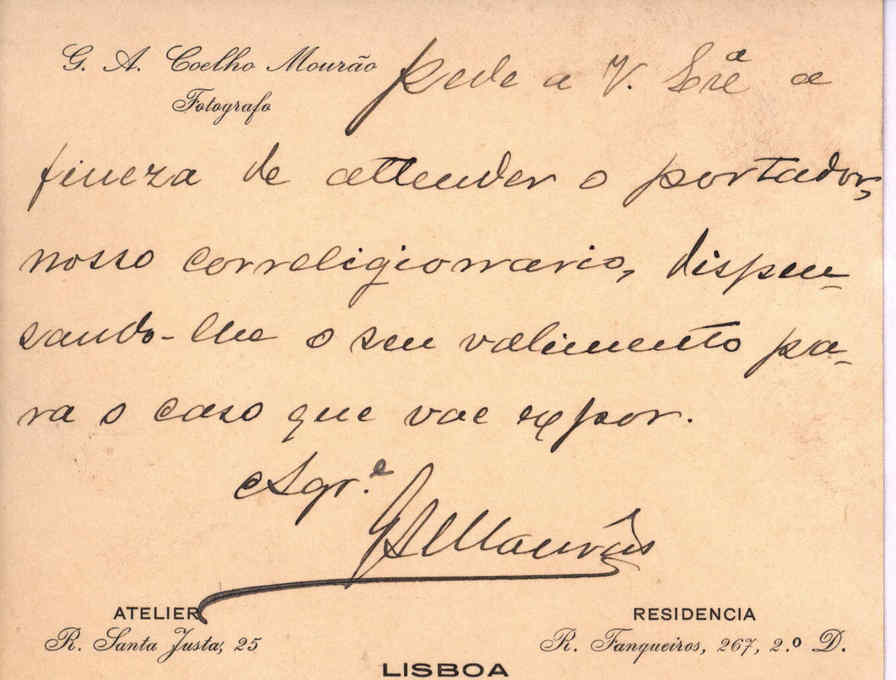 G. A. Coelho Mourão pede a V. Srê a
Fotografo
fineza de attender o portador,
nosso correligionario, dispen-
sando-lhe o seu valimento pa-
ra o caso que vae expor.
Agr.e
GAMourão
ATELIER
R. Santa Justa, 25
RESIDENCIA
R. Fanqueiros, 267, 2.º D.
LISBOA